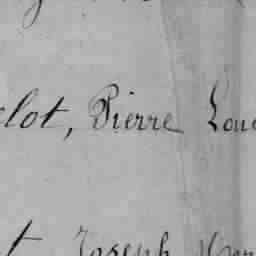 lot, Pierre Lou
t Joseph